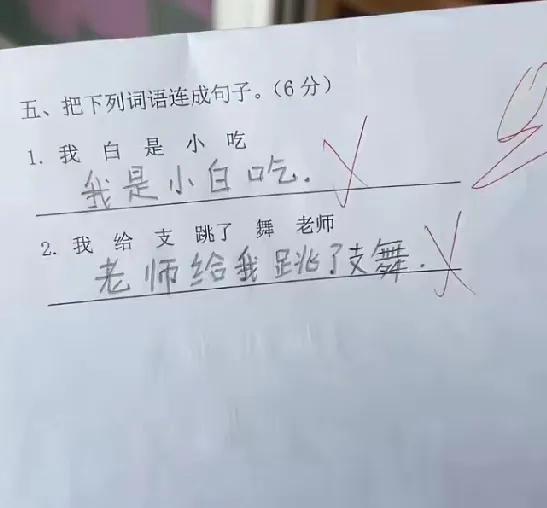 五、把下列词语连成句子。(6分)
1. 我 白 是 小 吃
我是小白吃.
2. 我 给 支 跳了 舞 老师
老师给我跳了支舞.